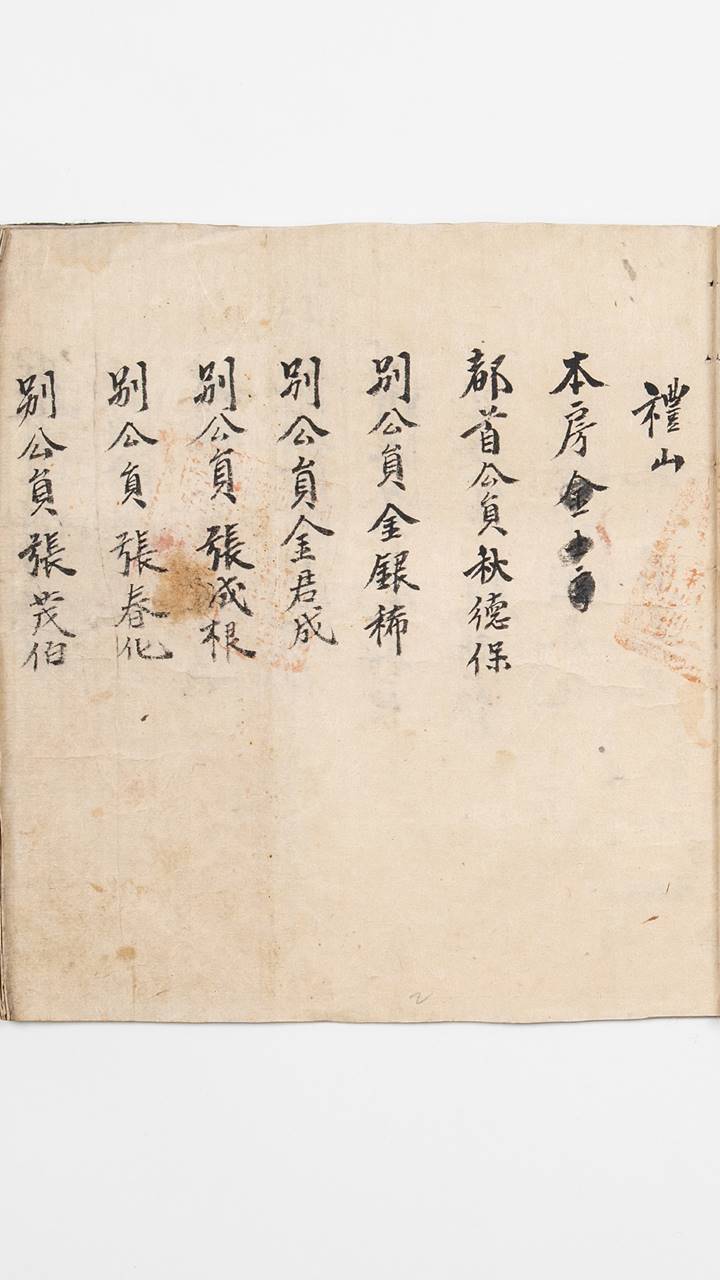 禮山
本房金
都首公員秋德保
別公員金銀稀
別公員金君成
別公員張成根
別公員張春化
別公員張茂伯
2